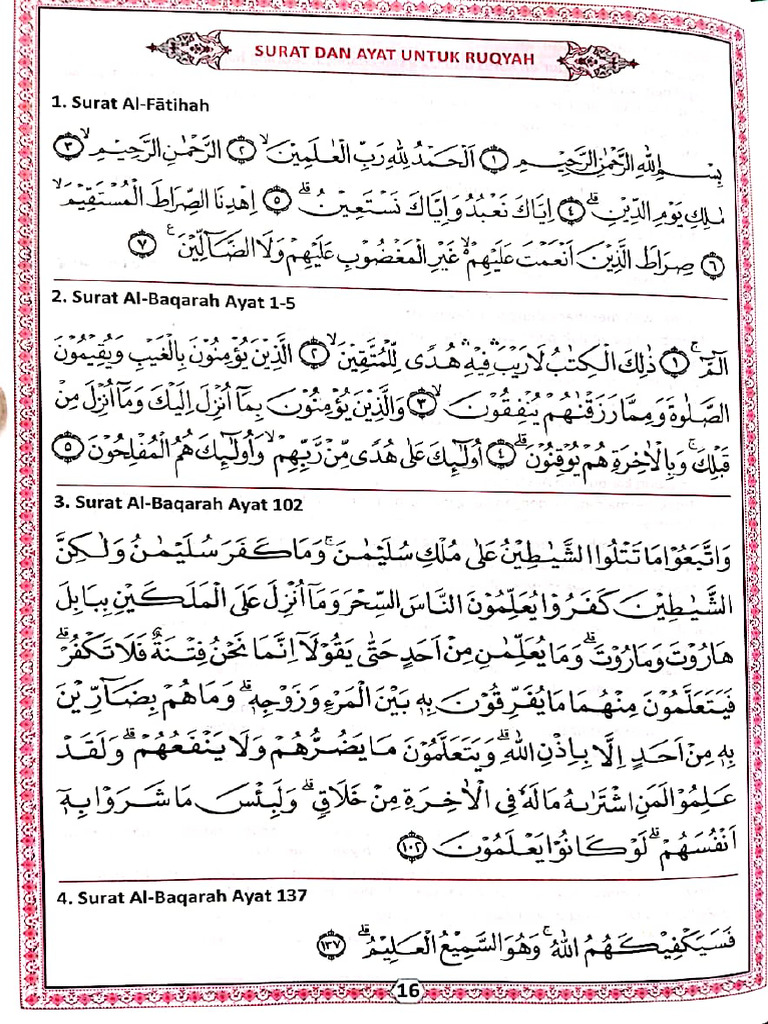 SURAT DAN AYAT UNTUK RUQYAH
1. Surat Al-Fātihah
بِسْمِ اللّٰهِ الرَّحْمٰنِ الرَّحِيْمِ ۝١ اَلْحَمْدُ لِلّٰهِ رَبِّ الْعٰلَمِيْنَۙ ۝٢ الرَّحْمٰنِ الرَّحِيْمِۙ ۝٣
مٰلِكِ يَوْمِ الدِّيْنِۗ ۝٤ اِيَّاكَ نَعْبُدُ وَاِيَّاكَ نَسْتَعِيْنُۗ ۝٥ اِهْدِنَا الصِّرَاطَ الْمُسْتَقِيْمَۙ
۝٦ صِرَاطَ الَّذِيْنَ اَنْعَمْتَ عَلَيْهِمْۙ غَيْرِ الْمَغْضُوْبِ عَلَيْهِمْ وَلَا الضَّاۤلِّيْنَࣖ ۝٧
2. Surat Al-Baqarah Ayat 1-5
الۤمّۤۚ ۝١ ذٰلِكَ الْكِتٰبُ لَا رَيْبَۛ فِيْهِۛ هُدًى لِّلْمُتَّقِيْنَۙ ۝٢ الَّذِيْنَ يُؤْمِنُوْنَ بِالْغَيْبِ وَيُقِيْمُوْنَ
الصَّلٰوةَ وَمِمَّا رَزَقْنٰهُمْ يُنْفِقُوْنَۙ ۝٣ وَالَّذِيْنَ يُؤْمِنُوْنَ بِمَآ اُنْزِلَ اِلَيْكَ وَمَآ اُنْزِلَ مِنْ
قَبْلِكَۚ وَبِالْاٰخِرَةِ هُمْ يُوْقِنُوْنَۗ ۝٤ اُولٰۤىِٕكَ عَلٰى هُدًى مِّنْ رَّبِّهِمْۙ وَاُولٰۤىِٕكَ هُمُ الْمُفْلِحُوْنَ ۝٥
3. Surat Al-Baqarah Ayat 102
وَاتَّبَعُوْا مَا تَتْلُوا الشَّيٰطِيْنُ عَلٰى مُلْكِ سُلَيْمٰنَۚ وَمَا كَفَرَ سُلَيْمٰنُ وَلٰكِنَّ
الشَّيٰطِيْنَ كَفَرُوْا يُعَلِّمُوْنَ النَّاسَ السِّحْرَ وَمَآ اُنْزِلَ عَلَى الْمَلَكَيْنِ بِبَابِلَ
هَارُوْتَ وَمَارُوْتَۗ وَمَا يُعَلِّمٰنِ مِنْ اَحَدٍ حَتّٰى يَقُوْلَآ اِنَّمَا نَحْنُ فِتْنَةٌ فَلَا تَكْفُرْۗ
فَيَتَعَلَّمُوْنَ مِنْهُمَا مَا يُفَرِّقُوْنَ بِهٖ بَيْنَ الْمَرْءِ وَزَوْجِهٖۗ وَمَا هُمْ بِضَاۤرِّيْنَ
بِهٖ مِنْ اَحَدٍ اِلَّا بِاِذْنِ اللّٰهِۗ وَيَتَعَلَّمُوْنَ مَا يَضُرُّهُمْ وَلَا يَنْفَعُهُمْۗ وَلَقَدْ
عَلِمُوْا لَمَنِ اشْتَرٰىهُ مَا لَهٗ فِى الْاٰخِرَةِ مِنْ خَلَاقٍۗ وَلَبِئْسَ مَا شَرَوْا بِهٖٓ
اَنْفُسَهُمْۗ لَوْ كَانُوْا يَعْلَمُوْنَ ۝١٠٢
4. Surat Al-Baqarah Ayat 137
فَسَيَكْفِيْكَهُمُ اللّٰهُۚ وَهُوَ السَّمِيْعُ الْعَلِيْمُۗ ۝١٣٧
16